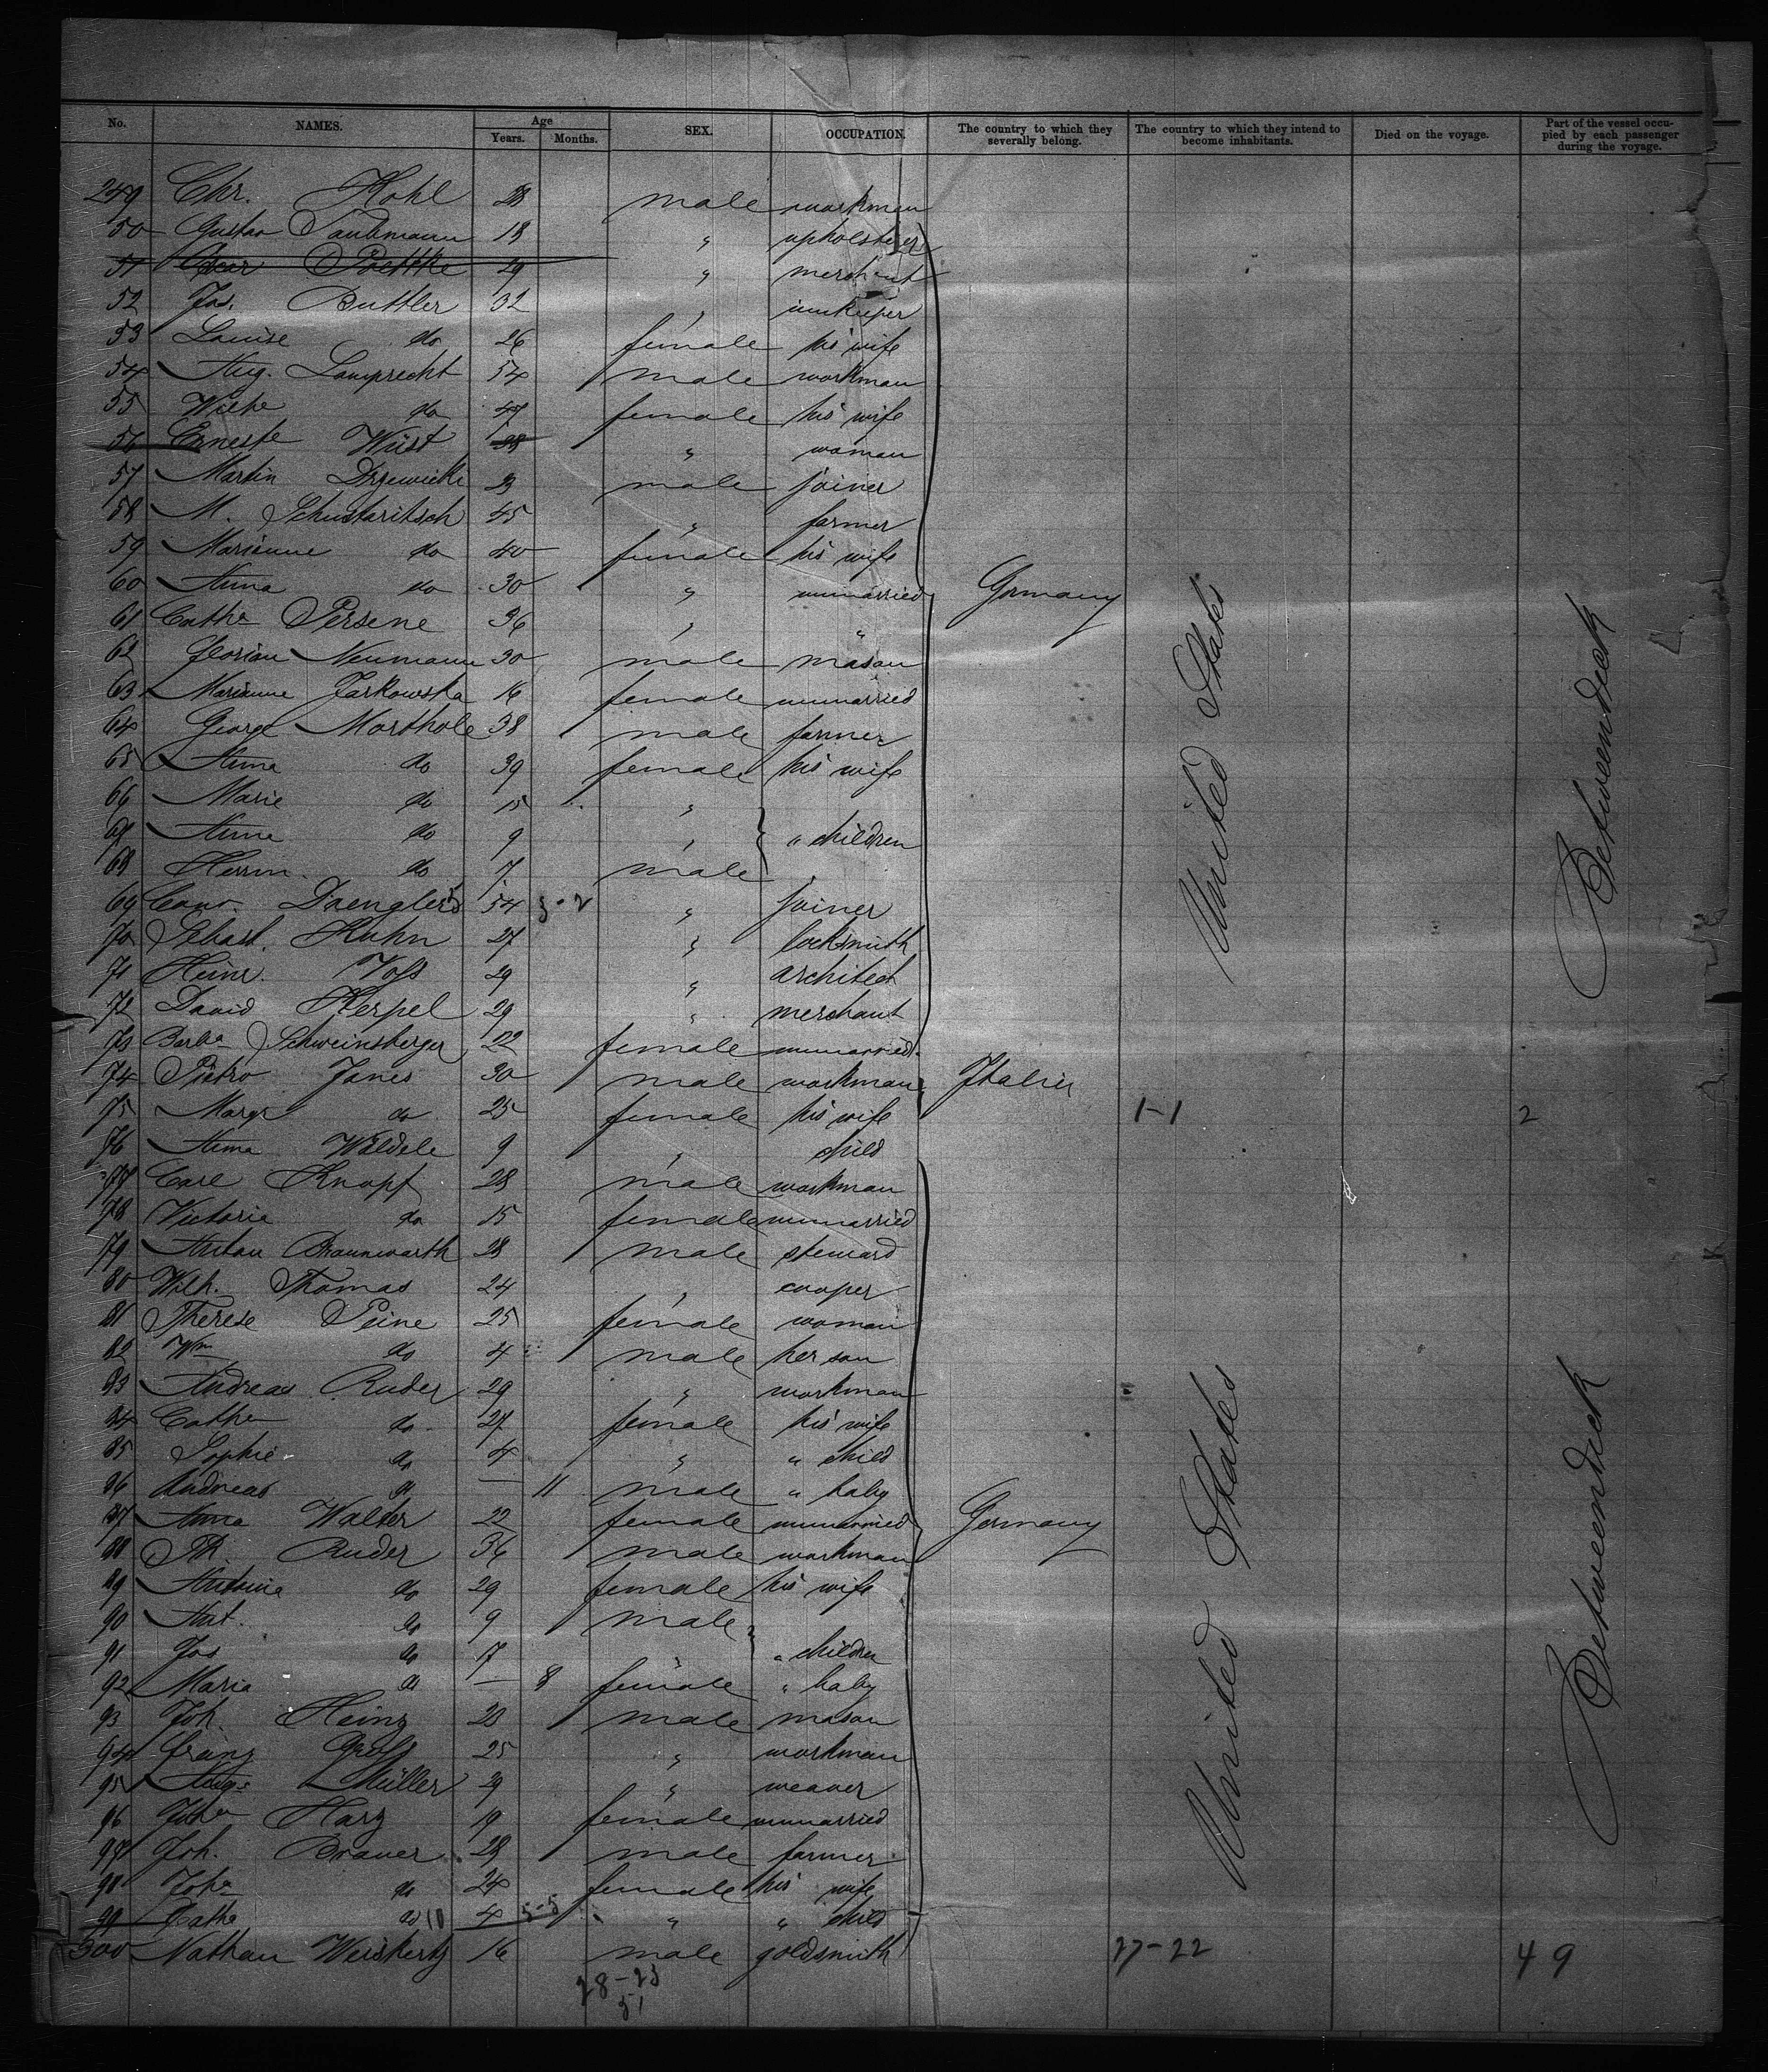 No. NAMES. Age Years. Months. SEX. OCCUPATION. The country to which they severally belong. The country to which they intend to become inhabitants. Died on the voyage. Part of the vessel occupied by each passenger during the voyage.
249 Chr. Kohl 28 male workman
50 Gustav Taubmann 18 " upholsterer
51 Oscar Poethke 29 " merchant
52 Jos. Buttler 32 " innkeeper
53 Louise do 26 female his wife
54 Aug. Lamprecht 54 male workman
55 Wilhe do 47 female his wife
56 Erneste Wüst 28 " woman
57 Martin Drzewicki 23 male joiner
58 M. Schustaritsch 45 " farmer
59 Marianne do 40 female his wife
60 Anna do 30 " unmarried Germany United States Betweendeck
61 Cathe Persene 36 " "
62 Florian Neumann 30 male mason
63 Marianne Jarkowska 16 female unmarried
64 George Morthole 38 male farmer
65 Anna do 39 female his wife
66 Marie do 15 "
67 Anna do 9 " " children
68 Herrm. do 7 male
69 54 3-2 " joiner
70 Sebast. Huhn 27 " locksmith
71 Heinr. Voss 29 " architect
72 David Kerpel 29 " merchant
73 Barba Schweinsberger 22 female unmarried
74 Pietro Janes 30 male workman Italien
75 Margr do 25 female his wife 1-1 2
76 Anna Wäldele 9 " child
77 Carl Knopf 28 male workman
78 Victoria do 15 female unmarried
79 Anton Braunwarth 28 male steward
80 Wilh. Thomas 24 " cooper
81 Therese Peine 25 female woman
82 Wm do 4 male her son
83 Andreas Ruder 29 " workman
84 Cathe do 27 female his wife
85 Sophie do 4 " " child
86 Andreas do — 11 male " baby
87 Anna Walter 22 female unmarried Germany United States Betweendeck
88 Ruder 36 male workman
89 Antonie do 29 female his wife
90 Ant. do 9 male
91 Jos do 7 " " children
92 Maria do — 8 female " baby
93 Joh. Heinz 23 male mason
94 Franz Gross 25 " workman
95 Aug. Müller 29 " weaver
96 Johe Harz 19 female unmarried
97 Joh. Brauer 28 male farmer
98 Johe do 24 female his wife
99 Cathe do 10 4 5-5 " " child
300 Nathan Weiskertz 16 male goldsmith 27-22 49
28-23
51